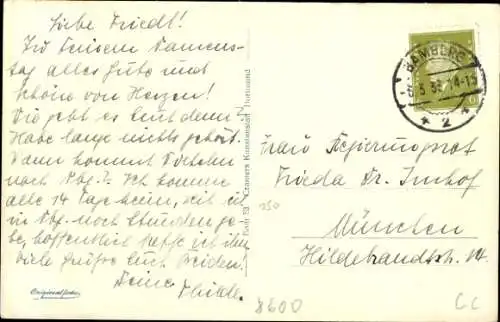 Liebe Friedl!
Zu Deinem Namens-
tag alles Gute und
Schöne von Herzen!
Wie geht es Euch denn?
Habe lange nichts gehört.
Wann kommst
nach Nbg.? Ich komme
alle 14 Tage heim, seit ich
in Nbg. noch Stunden ge-
be, hoffentlich treffe ich ihn
Viele Grüße Euch Beiden!
Deine
Thilde.
Originalfoto
Cramers Kunstanstalt Dortmund
BAMBERG
2
6
Frau Regierungsrat
Frieda Dr. Imhof
München
Hildebrandtstr. 14.
250
8600
CC